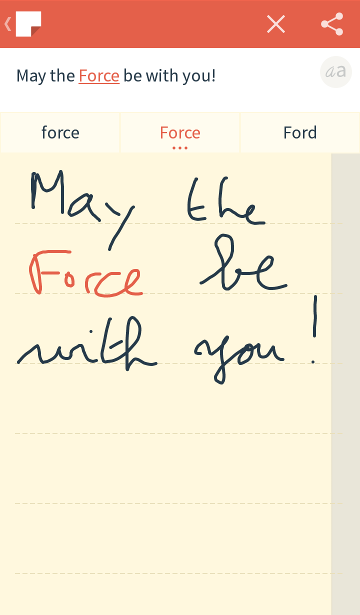 May the Force be with you!
aa
force Force Ford
May the
Force be
with you!